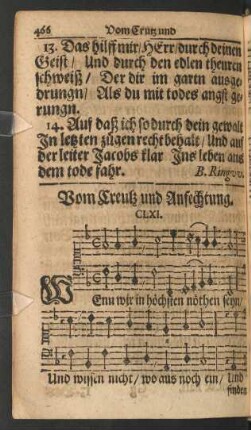 466 Vom Creutz und
13. Das hilff mir/ HErr/ durch deinen
Geist/ Und durch den edlen theuren
schweiß/ Der dir im gartn ausge-
drungn/ Als du mit todes angst ge-
rungn.
14. Auf daß ich so durch dein gewalt
In letzten zügen recht behalt/ Und auf
der leiter Jacobs klar Ins leben aus
dem tode fahr. B. Ringw.
Vom Creutz und Anfechtung.
CLXI.
WEnn wir in höchsten nöthen seyn/
Und wissen nicht/ wo aus noch ein/ Und
finden